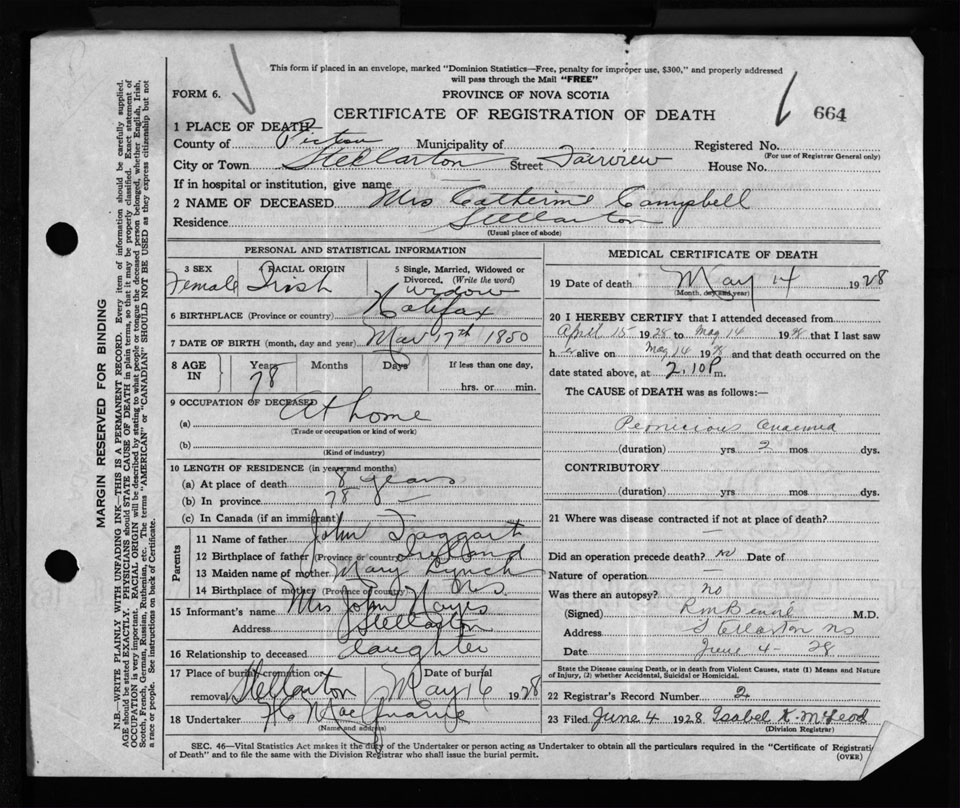 This form if placed in an envelope, marked "Dominion Statistics—Free, penalty for improper use, $300," and properly addressed
will pass through the Mail "FREE"
FORM 6.
PROVINCE OF NOVA SCOTIA
CERTIFICATE OF REGISTRATION OF DEATH
664
1 PLACE OF DEATH—
County of Pictou Municipality of Registered No.
(For use of Registrar General only)
City or Town Stellarton Street Fairview House No.
If in hospital or institution, give name
2 NAME OF DECEASED Mrs Catherine Campbell
Residence Stellarton
(Usual place of abode)
PERSONAL AND STATISTICAL INFORMATION
3 SEX Female
RACIAL ORIGIN Irish
5 Single, Married, Widowed or
Divorced. (Write the word)
widow
6 BIRTHPLACE (Province or country) Halifax
7 DATE OF BIRTH (month, day and year) Mar 17th 1850
8 AGE IN Years 78 Months Days If less than one day,
hrs. or min.
9 OCCUPATION OF DECEASED
(a) At home
(Trade or occupation or kind of work)
(b)
(Kind of industry)
10 LENGTH OF RESIDENCE (in years and months)
(a) At place of death 8 years
(b) In province 78 —
(c) In Canada (if an immigrant)
Parents
11 Name of father John Taggart
12 Birthplace of father (Province or country) Ireland
13 Maiden name of mother Mary Lynch
14 Birthplace of mother (Province or country) N.S.
15 Informant's name Mrs John Hayes
Address Stellarton
16 Relationship to deceased daughter
17 Place of burial, cremation or Date of burial
removal Stellarton May 16 1928
18 Undertaker
(Name and address)
MEDICAL CERTIFICATE OF DEATH
19 Date of death May 14 1928
(Month, day and year)
20 I HEREBY CERTIFY that I attended deceased from
April 15 1928 to May 14 1928 that I last saw
h er alive on May 14 1928 and that death occurred on the
date stated above, at 2.10 P m.
The CAUSE of DEATH was as follows:—
Pernicious Anaemia
(duration) yrs 2 mos dys.
CONTRIBUTORY
(duration) yrs. mos. dys.
21 Where was disease contracted if not at place of death?
—
Did an operation precede death? no Date of
Nature of operation —
Was there an autopsy? no
(Signed) M.D.
Address Stellarton NS
Date June 4 - 28
State the Disease causing Death, or in death from Violent Causes, state (1) Means and Nature
of Injury, (2) whether Accidental, Suicidal or Homicidal.
22 Registrar's Record Number 2
23 Filed June 4 1928 Isabel K. McLeod
(Division Registrar)
SEC. 46—Vital Statistics Act makes it the duty of the Undertaker or person acting as Undertaker to obtain all the particulars required in the "Certificate of Registrati
of Death" and to file the same with the Division Registrar who shall issue the burial permit.
(OVER)
MARGIN RESERVED FOR BINDING
N.B.—WRITE PLAINLY WITH UNFADING INK—THIS IS A PERMANENT RECORD. Every item of information should be carefully supplied.
AGE should be stated EXACTLY. PHYSICIANS should STATE CAUSE OF DEATH in plain terms, so that it may be properly classified. Exact statement of
OCCUPATION is very important. RACIAL ORIGIN will be described by stating to what people or tongue the deceased person belonged, whether English, Irish,
Scotch, French, German, Russian, Ruthenian, etc. The terms "AMERICAN" or "CANADIAN" SHOULD NOT BE USED as they express citizenship but not
a race or people. See instructions on back of Certificate.